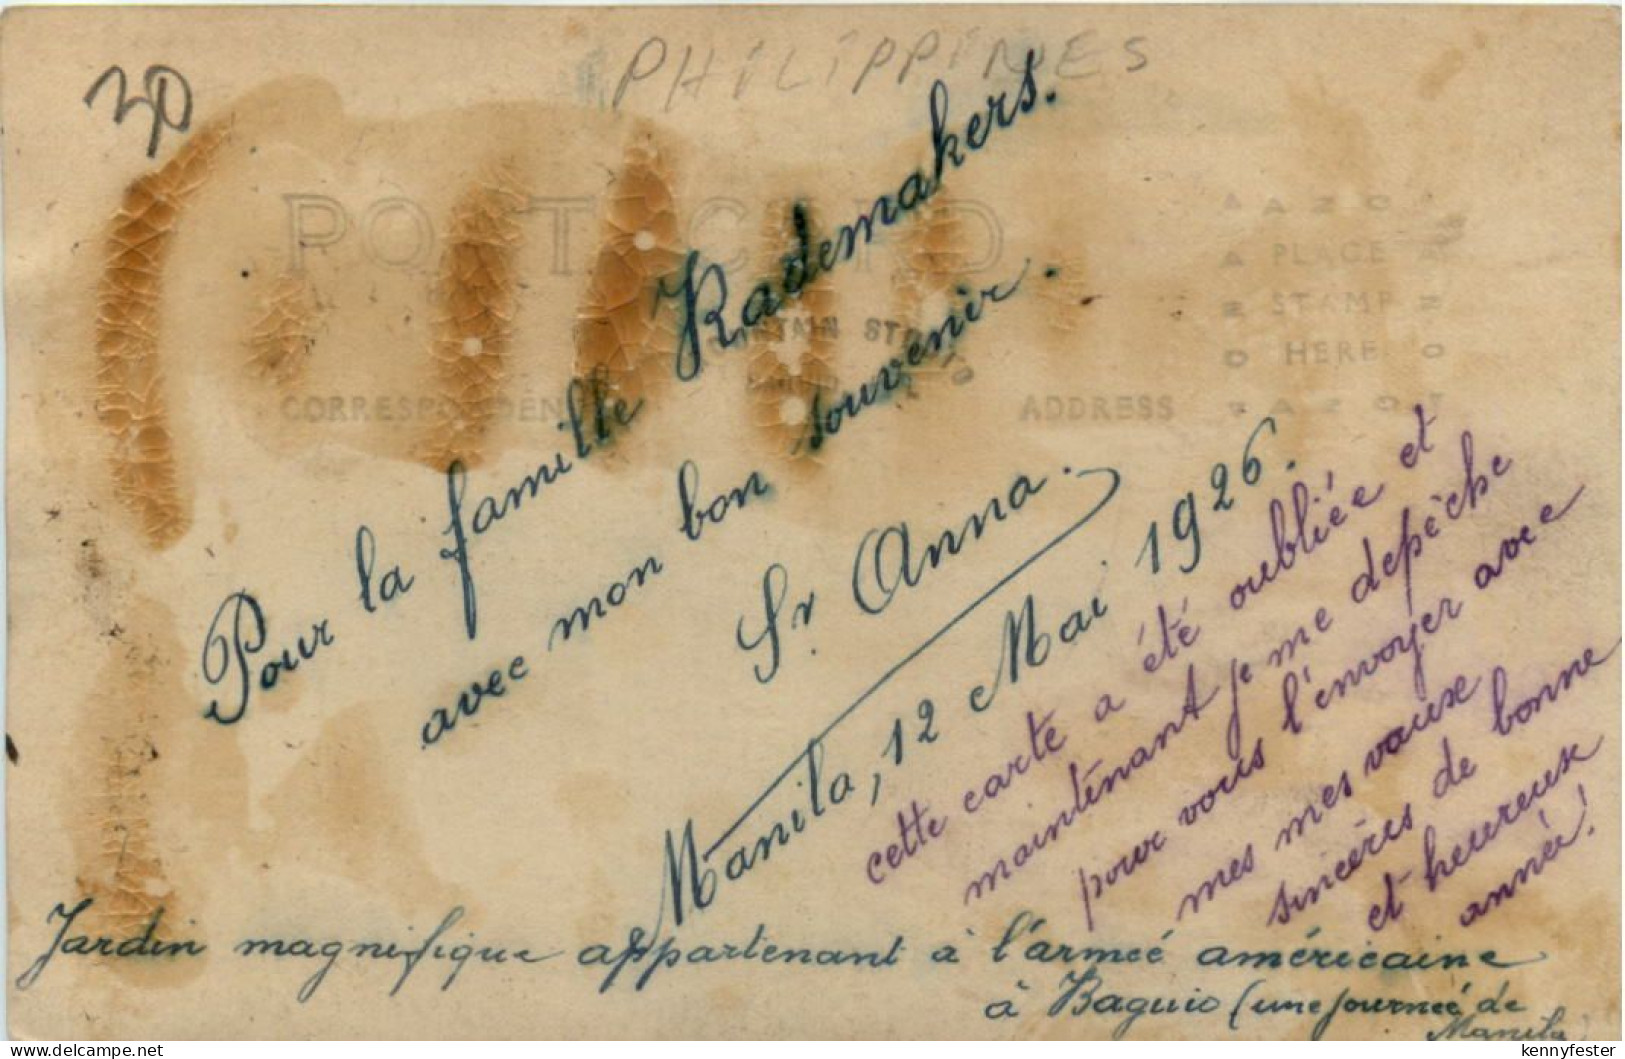 30
PHILIPPINES
POST CARD
AZO
PLACE
STAMP
HERE
AZO
CORRESPONDEN
ADDRESS
Pour la famille Rademakers.
avec mon bon souvenir.
Sr Anna.
Manila, 12 Mai 1926.
cette carte a été oubliée et
maintenant je me depèche
pour vous l'envoyer avec
mes mes vaux
sincères de bonne
et heureuse
année!
Jardin magnifique appartenant à l'armée américaine
à Baguio (une journée de
Manila)
kennyfester